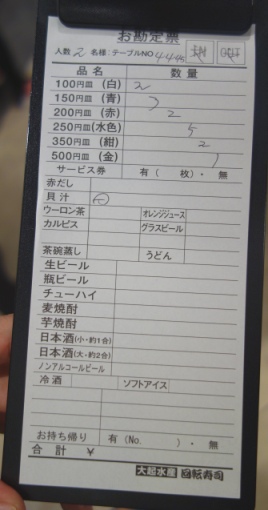 お勘定票
人数 2 名様:テーブルNO 44
品名 数量
100円皿 (白) 2
150円皿 (青)
200円皿 (赤) 2
250円皿 (水色) 5
350円皿 (紺) 2
500円皿 (金) 1
サービス券 有 ( 枚)・無
赤だし
貝汁 ㊀
ウーロン茶 オレンジジュース
カルピス グラスビール
茶碗蒸し うどん
生ビール
瓶ビール
チューハイ
麦焼酎
芋焼酎
日本酒(小・約1合)
日本酒(大・約2合)
ノンアルコールビール
冷酒 ソフトアイス
お持ち帰り 有 (No. )・無
合計 ¥
大起水産 回転寿司